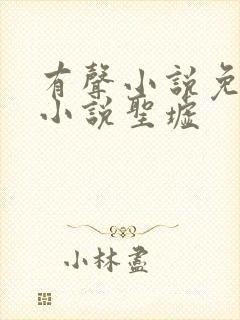 有聲小說免
小說聖墟
小林盡